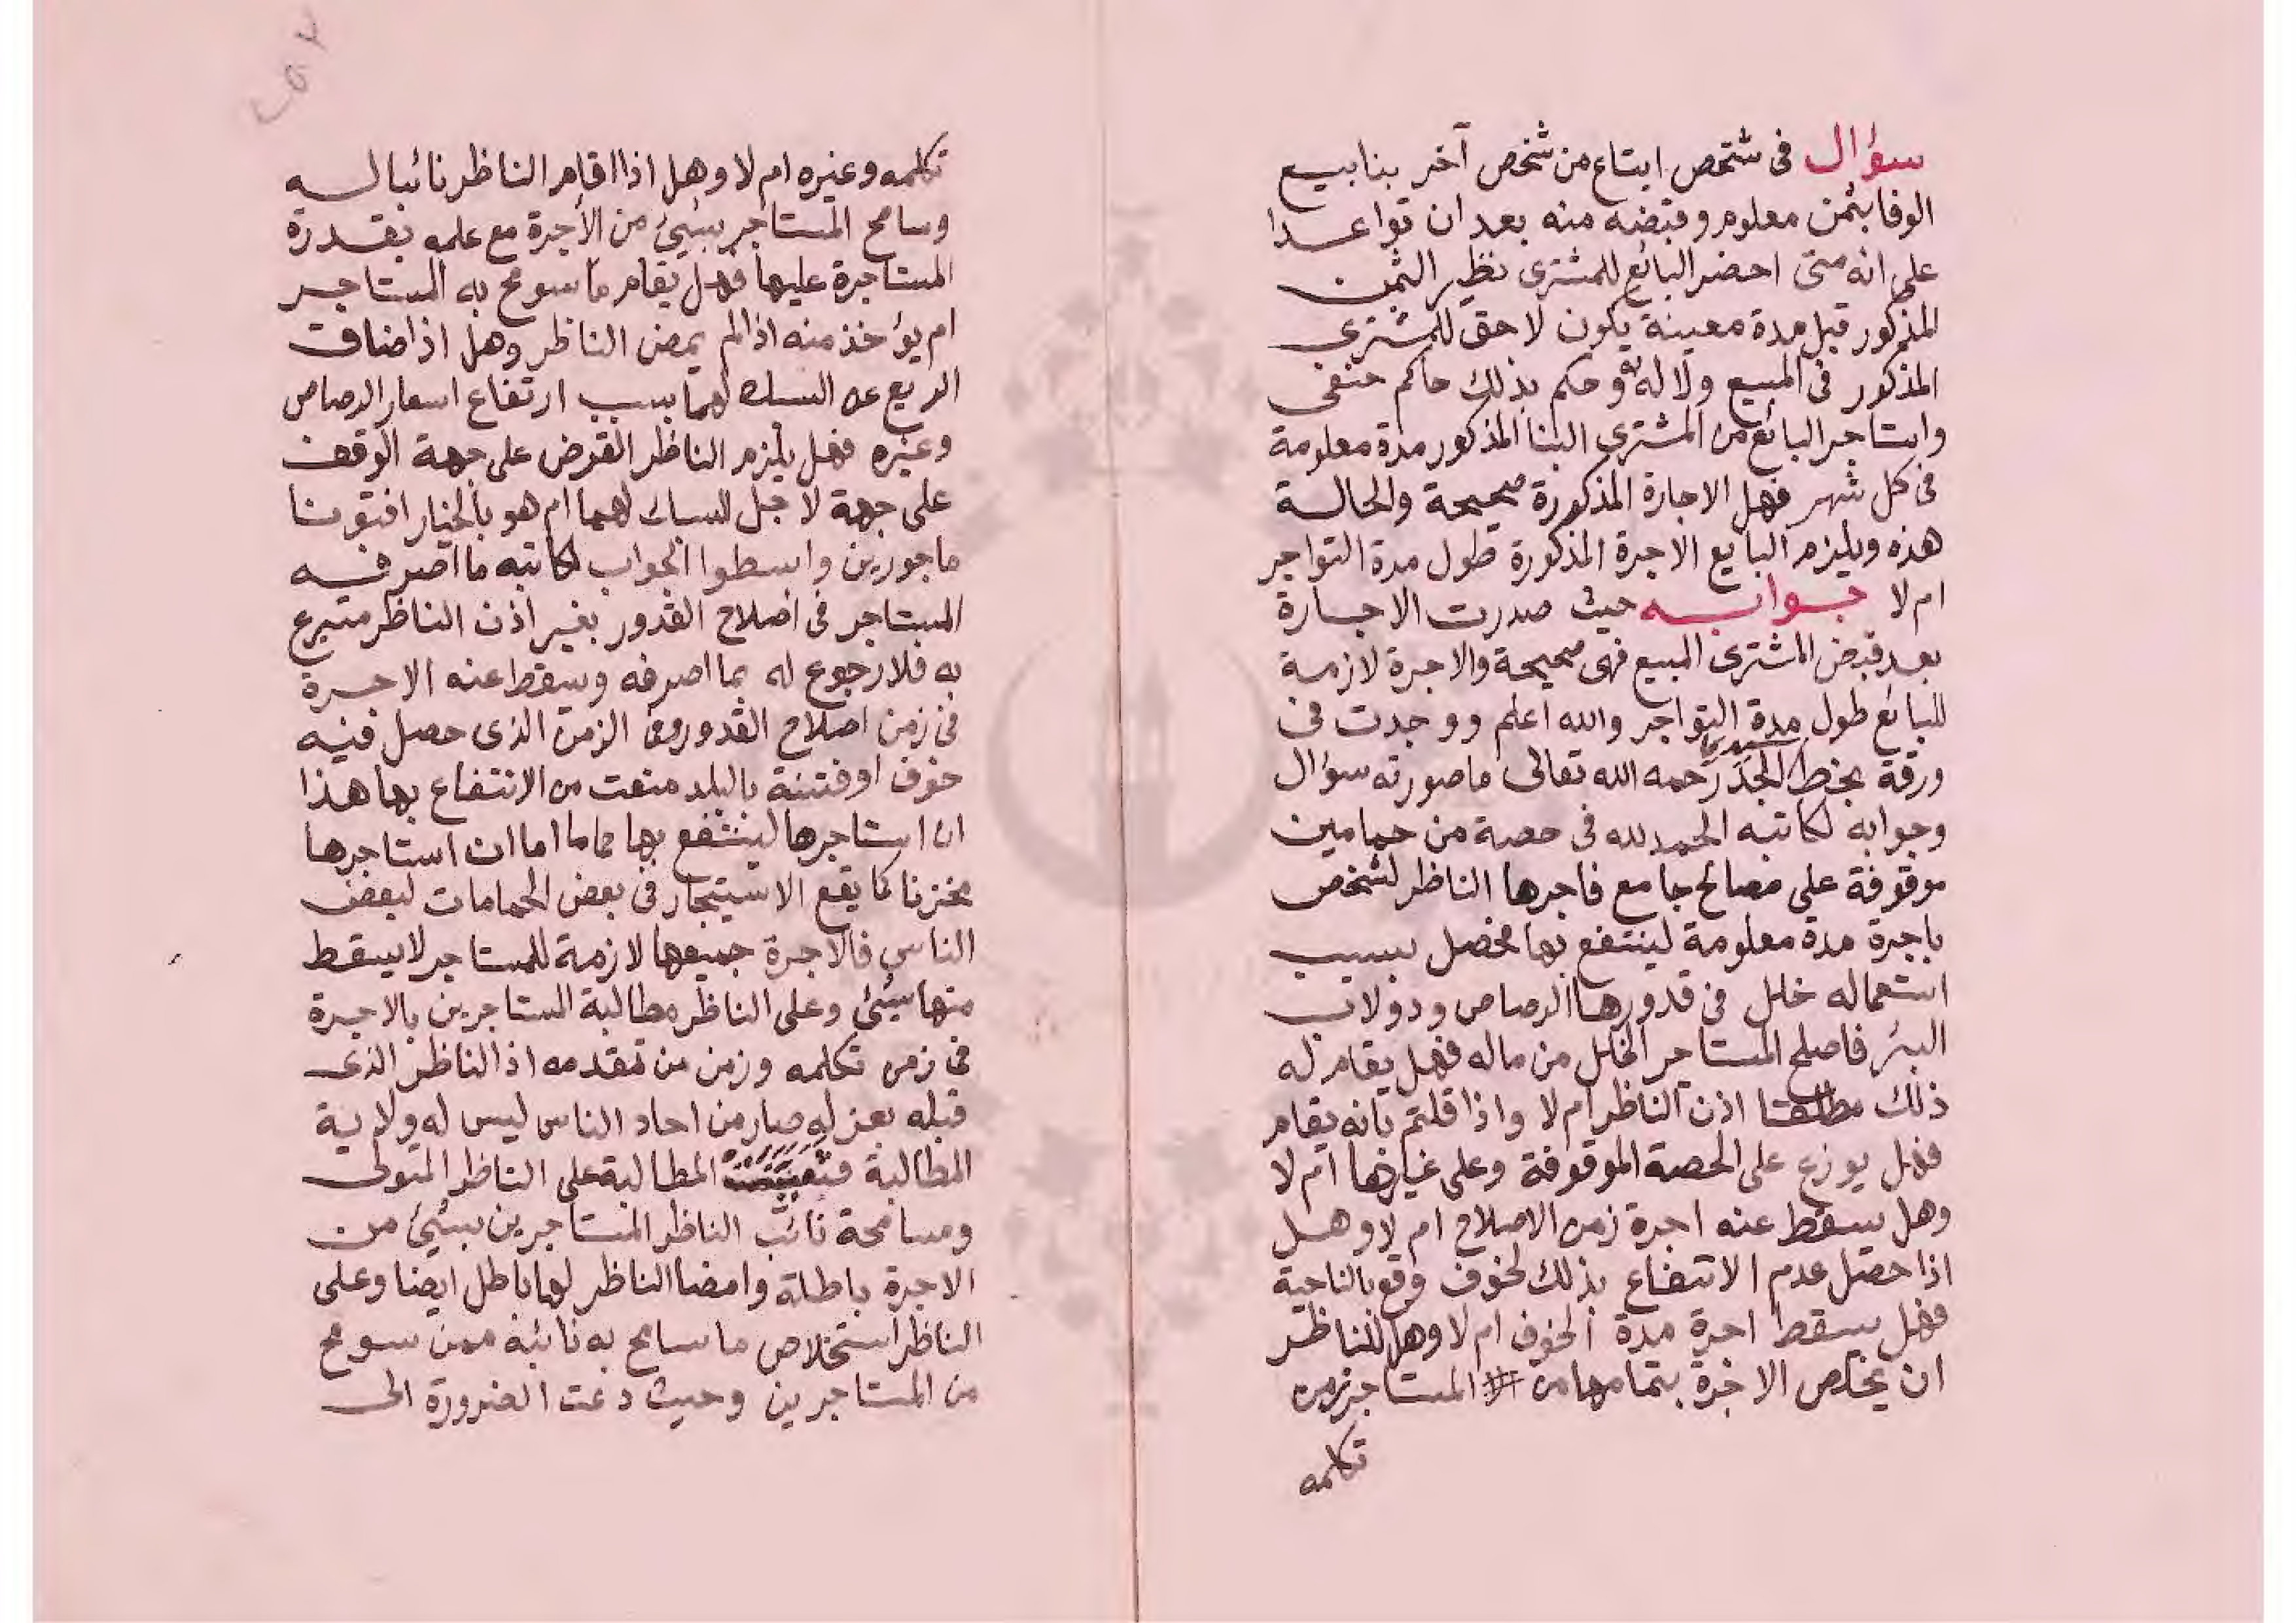 سؤال فى شخص ابتاع من شخص آخر بنا بيع
الوفا بثمن معلوم وقبضه منه بعد ان تواعدا
على انه متى احضر البائع للمشترى نظير الثمن
المذكور قبل مدة معينة يكون لا حق للمشترى
المذكور فى المبيع ولا له وحكم بذلك حاكم حنفى
واستاجر البائع من المشترى البنا المذكور مدة معلومة
فى كل شهر فهل الاجارة المذكورة صحيحة والحالة
هذه ويلزم البايع الاجرة المذكورة طول مدة التواجر
ام لا جوابه حيث صدرت الاجارة
بعد قبض المشترى المبيع فهى صحيحة والاجرة لازمة
للبائع طول مدة التواجر والله اعلم ووجدت فى
ورقة بخط سيدى الجد رحمه الله تعالى ما صورته سؤال
وجوابه لكاتبه الحمد لله فى حصة من حمامين
موقوفة على مصالح جامع فاجرها الناظر لشخص
باجرة مدة معلومة لينتفع بها فحصل بسبب
استعماله خلل فى قدورها الرصاص ودولاب
البئر فاصلح المستاجر الخلل من ماله فهل يقام له
ذلك مطلقا اذن الناظر ام لا واذا قلتم بانه يقام
فهل يوزع على الحصة الموقوفة وعلى غيرها ام لا
وهل يسقط عنه اجرة زمن الاصلاح ام لا وهل
اذا حصل عدم الانتفاع بذلك لخوف وقع بالناحية
فهل يسقط اجرة مدة الخوف ام لا وهل للناظر
ان يخلص الاجرة بتمامها من المستاجر زمن
تكلمه
تكلمه وغيره ام لا وهل اذا اقام الناظر نائبا له
وسامح المستاجر بشئ من الأجرة مع علمه بقدرة
المستاجرة عليها فهل يقام ما سومح به المستاجر
ام يؤخذ منه اذا لم يمض الناظر وهل اذا ضاق
الريع عن السباك لهما بسبب ارتفاع اسعار الرصاص
وغيره فهل يلزم الناظر القرض على جهة الوقف
على جهة لاجل السباك لهما ام هو بالخيار افتونا
ماجورين وابسطوا الجواب لكاتبه ما اصرفه
المستاجر فى اصلاح القدور بغير اذن الناظر متبرع
به فلا رجوع له بما اصرفه وسقط عنه الاجرة
فى زمن اصلاح القدور وفى الزمن الذى حصل فيه
خوف او فتنة بالبلد منعت من الانتفاع بها هذا
ان استاجرها لينتفع بها حماما اما ان استاجرها
مخزنا كما يقع الاستيجار فى بعض الحمامات لبعض
الناس فالاجرة جميعها لازمة للمستاجر لا يسقط
منها شئ وعلى الناظر مطالبة المستاجرين بالاجرة
فى زمن تكلمه وزمن من تقدمه اذ الناظر الذى
قبله بعزله صار من احاد الناس ليس له ولاية
المطالبة المطالبة على الناظر المتولى
ومسامحة نائب الناظر المستاجرين بشئ من
الاجرة باطلة وامضا الناظر لها باطل ايضا وعلى
الناظر استخلاص ما سامح به نائبه ممن سومح
من المستاجرين وحيث دعت الضرورة الى